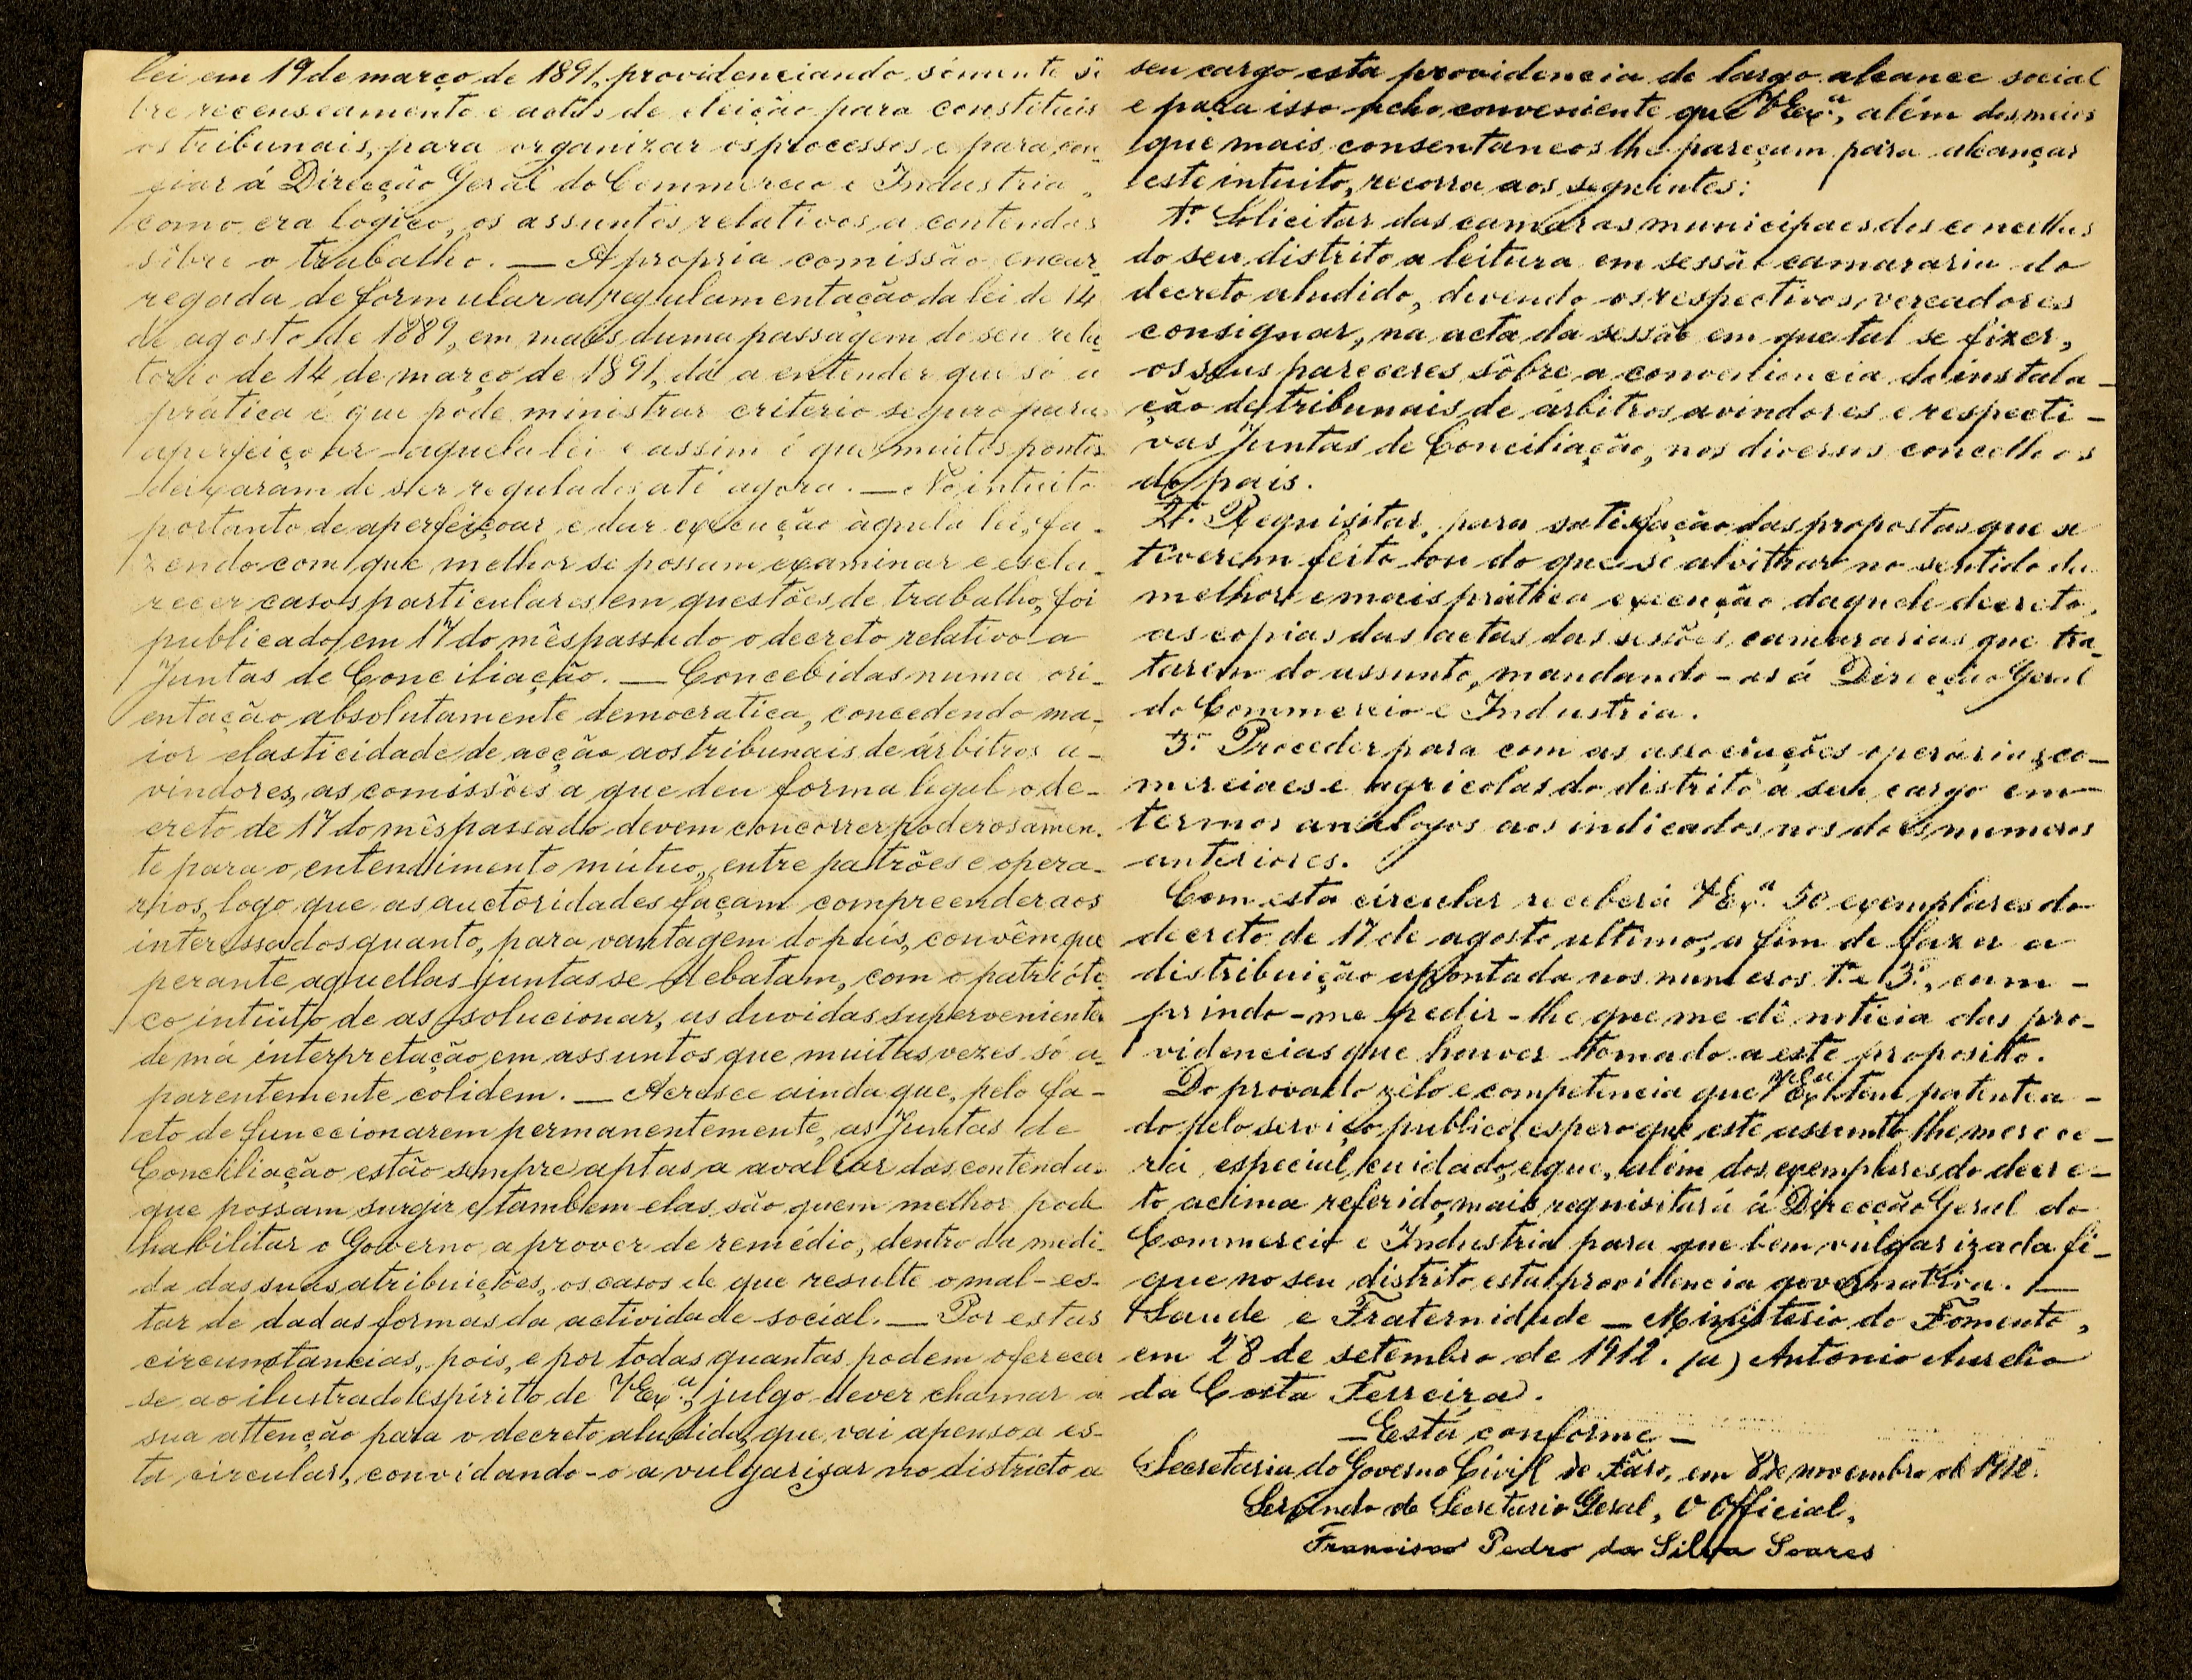 lei em 19 de março de 1891, providenciando sómente sô
bre recenseamento e actos de eleição para constituir
os tribunais, para organizar os processos e para con-
fiar á Direcção Geral do Commercio e Industria,
como era logico, os assuntos relativos a contendas
sôbre o trabalho. — A propria comissão encar-
regada de formular a regulamentação da lei de 14
de agosto de 1889, em mais duma passagem do seu rela-
torio de 14 de março de 1891, dá a entender que só a
prática é que póde ministrar criterio seguro para
aperfeiçoar aquela lei e assim é que muitos pontos
deixaram de ser regulados até agora. — No intuito
portanto de aperfeiçoar e dar execução àquela lei, fa-
zendo com que melhor se possam examinar e escla-
recer casos particulares em questões de trabalho, foi
publicado em 17 do mês passado o decreto relativo a
Juntas de Conciliação. — Concebidas numa ori-
entação absolutamente democratica, concedendo ma-
ior elasticidade de acção aos tribunais de árbitros a-
vindores, as comissões a que deu forma legal o de-
creto de 17 do mês passado devem concorrer poderosamen-
te para o entendimento mútuo, entre patrões e opera-
rios, logo que as auctoridades façam compreender aos
interessados quanto, para vantagem do país, convêm que
perante aquellas juntas se debatam, com o patrióti-
co intuito de as solucionar, as duvidas supervenientes
de má interpretação em assuntos que muitas vezes só a-
parentemente colidem. — Acresce ainda que, pelo fa-
cto de funccionarem permanentemente, as Juntas de
Conciliação estão sempre aptas a avaliar das contendas
que possam surgir e tambem elas são quem melhor pode
habilitar o Governo a prover de remédio, dentro da medi-
da das suas atribuições, os casos de que resulte o mal-es-
tar de dadas formas da actividade social. — Por estas
circunstancias, pois, e por todas quantas podem oferecer
-se ao ilustrado espírito de V Exª. julgo dever chamar a
sua attenção para o decreto aludido, que vai apenso a es-
ta circular, convidando-o a vulgarisar no districto a
seu cargo esta providencia de largo alcance social
e para isso acho conveniente que V Exª., além dos meios
que mais consentaneos lhe pareçam para alcançar
este intuito, recorra aos seguintes:
1º. Solicitar das camaras municipaes dos concelhos
do seu distrito a leitura em sessão camararia do
decreto aludido, devendo os respectivos vereadores
consignar, na acta da sessão em que tal se fizer,
os seus pareceres sôbre a conveniencia da instala-
ção de tribunais de árbitros avindores e respecti-
vas Juntas de Conciliação, nos diversos concelhos
do pais.
2º. Requisitar, para satisfação das propostas que se
tiverem feito ou do que se alvitrar no sentido da
melhor e mais prática execução daquele decreto,
as copias das actas das sessões camararias que tra-
tarem do assunto, mandando-as á Direcção Geral
do Commercio e Industria.
3º. Proceder para com as associações operárias, co-
merciaes e agricolas do distrito a seu cargo em
termos análogos aos indicados nos dois numeros
anteriores.
Com esta circular receberá V Exª. 50 exemplares do
decreto de 17 de agosto ultimo, a fim de fazer a
distribuição apontada nos numeros 1º. e 3º., cum-
prindo-me pedir-lhe que me dê noticia das pro-
videncias que houver tomado a este proposito.
Do provado zêlo e competencia que V Exª tem patentea-
do pelo serviço publico, espero que este assunto lhe merece-
rá especial cuidado, e que, além dos exemplares do decre-
to acima referido, mais requisitará á Direcção Geral do
Commercio e Industria para que bem vulgarizada fi-
que no seu distrito esta providencia governativa. —
Saude e Fraternidade — Ministerio do Fomento,
em 28 de setembro de 1912. (a) Antonio Aurelio
da Costa Ferreira.
— Está conforme —
Secretaria do Governo Civil de Faro, em 8 de novembro de 1912.
Servindo de Secretario Geral, O Official,
Francisco Pedro da Silva Soares